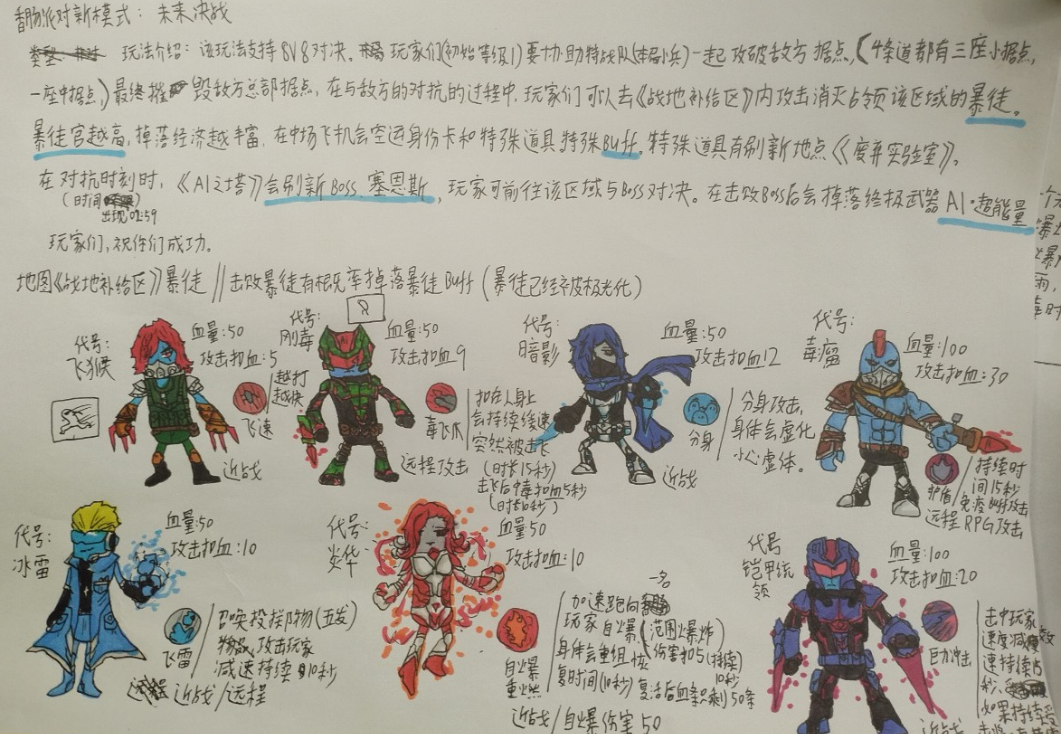 香肠派对新模式：未来决战
玩法介绍：该玩法支持8V8对决。玩家们(初始等级1)要协助特战队(本局小兵)一起攻破敌方据点，(4条道都有三座小据点，
一座中据点，)最终摧毁敌方总部据点，在与敌方的对抗的过程中，玩家们可以去《战地补给区》内攻击消灭占领该区域的暴徒。
暴徒官越高，掉落经济越丰富，在中场飞机会空运身份卡和特殊道具特殊Buff。特殊道具有刷新地点《废弃实验室》。
在对抗时刻时，《AI之塔》会刷新Boss 塞恩斯，玩家可前往该区域与Boss对决。在击败Boss后会掉落终极武器AI·超能量
(时间
出现01:59
玩家们，祝你们成功。
地图《战地补给区》暴徒 // 击败暴徒有概率掉落暴徒Buff (暴徒已经被极光化)
代号：
飞猴
血量：50
攻击扣血：5
飞速
越打
越快
近战
代号：
刚毒
血量：50
攻击扣血9
毒飞爪
远程攻击
扣在人身上
会持续缓速
突然被击飞
(时长15秒)
击飞后中毒扣血5秒
(时长10秒)
代号：
暗影
血量：50
攻击扣血12
分身
分身攻击，
身体会虚化
小心虚体。
近战
代号：
毒瘤
血量：100
攻击扣血：30
护盾
持续时
间15秒
免疫Buff攻击
远程RPG攻击
代号：
冰雷
血量：50
攻击扣血：10
飞雷
召唤投掷物(五发)
攻击玩家
减速持续10秒
近战/远程
代号：
炎华
血量50
攻击扣血：10
自爆
重燃
加速跑向一名
玩家自爆(范围爆炸
伤害扣5(持续)
10秒)
身体会重组恢
复时间(10秒)
复活后血条只剩50条
近战/自爆伤害50
代号
铠甲统
领
血量：100
攻击扣血：20
巨力冲击
击中玩家
速度减
速持续15
秒，
如果持续受
近战